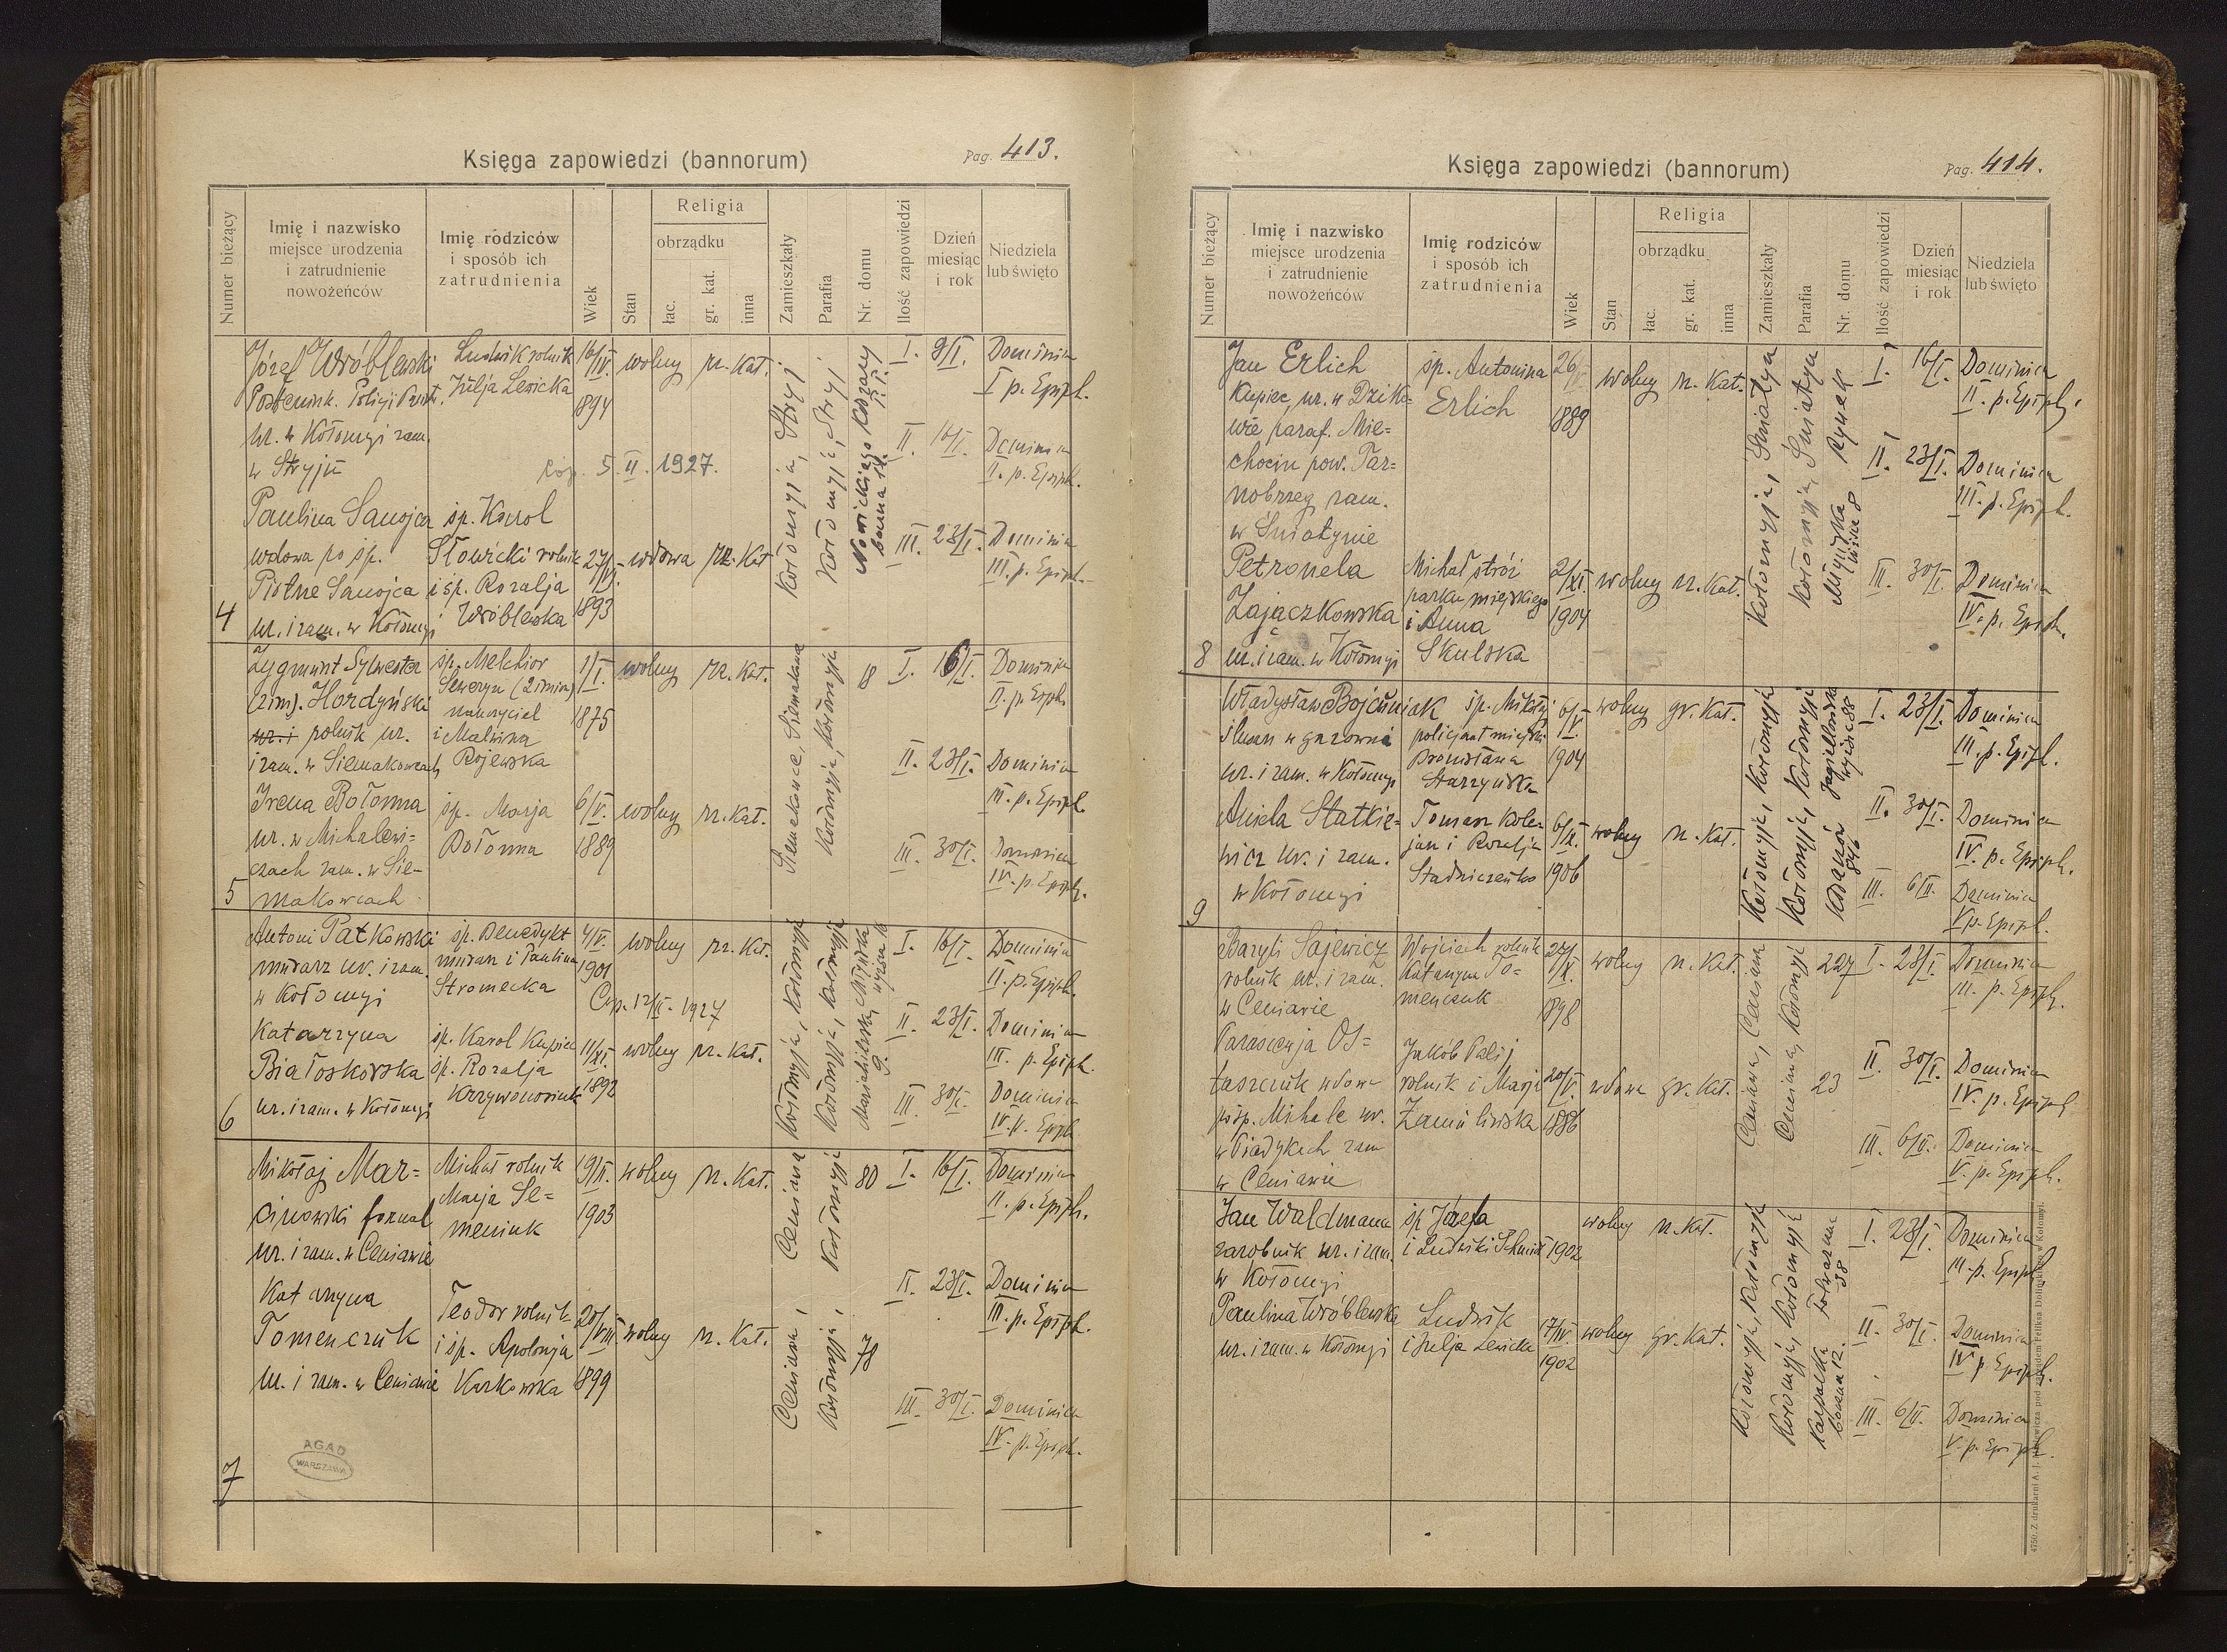 Księga zapowiedzi (bannorum)
Pag. 413.
Numer bieżący
Imię i nazwisko
miejsce urodzenia
i zatrudnienie
nowożeńców
Imię rodziców
i sposób ich
zatrudnienia
Wiek
Stan
Religia
obrządku
łac.
gr. kat.
inna
Zamieszkały
Parafia
Nr. domu
Ilość zapowiedzi
Dzień
miesiąc
i rok
Niedziela
lub święto
4
Józef Wróblewski
ur. w Kołomyi zam.
w Stryju
Ludwik rolnik
Julja Lewicka
16/IV.
1894
wolny
rz. kat.
5. II. 1927.
Paulina Sanojca
wdowa po śp.
Piotrze Sanojca
ur. i zam. w Kołomyi
śp. Karol
Słowicki rolnik
i śp. Rozalja
Wróblewska
1893
wdowa
rz. kat
Kołomyja, Stryj
Kołomyja, Stryj
I. 9/I. Dominica
I p. Epiph.
II. 16/I. Dominica
II. p. Epiph.
III. 23/I. Dominica
III. p. Epiph.
5
Zygmunt Sylwester
(2im). Hordyński
ur. i rolnik ur.
i zam. w Siemakowcach
śp. Melchior
Seweryn (2 imion)
nauczyciel
i Malwina
Rojewska
1/I.
1875
wolny
rz. kat.
Irena Bołonna
ur. w Michalewi-
czach zam. w Sie-
makowcach
śp. Marja
Bołonna
6/V.
1889
wolny
rz. kat.
18
I. 16/I. Dominica
II. p. Epiph.
II. 23/I. Dominica
III. p. Epiph.
III. 30/I. Dominica
IV. p. Epiph.
6
Antoni Patkowski
murarz ur. i zam.
w Kołomyi
śp. Benedykt
murarz i Paulina
Stromecka
4/V.
1901
wolny
rz. kat.
Cop. 12/II. 1927
Katarzyna
Białoskórska
ur. i zam. w Kołomyi
śp. Karol Kupiec
śp. Rozalja
Krzywonosiuk
11/XI.
1892
wolny
rz. kat.
Kołomyja, Kołomyja
Kołomyja, Kołomyja
I. 16/I. Dominica
II. p. Epiph.
II. 23/I. Dominica
III. p. Epiph.
III. 30/I. Dominica
IV. p. Epiph.
7
Mikołaj Mar-
cinowski fornal
ur. i zam. w Ceniawie
Michał rolnik
Marja Se-
meniuk
1903
wolny
rz. kat.
Katarzyna
Tomenczuk
ur. i zam. w Ceniawie
Teodor rolnik
i śp. Apolonja
Karkowska
20/VIII.
1899
wolny
rz. kat.
Ceniawa, Ceniawa
Kołomyja, Kołomyja
80
78
I. 16/I. Dominica
II. p. Epiph.
II. 23/I. Dominica
III. p. Epiph.
III. 30/I. Dominica
IV. p. Epiph.
AGAD
WARSZAWA
Księga zapowiedzi (bannorum)
Pag. 414.
Numer bieżący
Imię i nazwisko
miejsce urodzenia
i zatrudnienie
nowożeńców
Imię rodziców
i sposób ich
zatrudnienia
Wiek
Stan
Religia
obrządku
łac.
gr. kat.
inna
Zamieszkały
Parafia
Nr. domu
Ilość zapowiedzi
Dzień
miesiąc
i rok
Niedziela
lub święto
8
Jan Erlich
Kupiec, ur. w Dziko-
wie paraf. Mie-
chocin pow. Tar-
nobrzeg zam.
w Śniatynie
śp. Antonina
Erlich
1889
wolny
rz. kat.
Petronela
Zajączkowska
ur. i zam. w Kołomyi
Michał stróż
parku miejskiego
i Anna
Skulska
2/XI.
1904
wolny
rz. kat.
Kołomyja, Śniatyn
Kołomyja, Śniatyn
Rynek
I. 16/I. Dominica
II. p. Epiph.
II. 23/I. Dominica
III. p. Epiph.
III. 30/I. Dominica
IV. p. Epiph.
9
Władysław Bojczuniak
ślusarz w gazowni
ur. i zam. w Kołomyi
śp. Mikołaj
policjant miejski
Bronisława
Starzyńska
1904
wolny
gr. kat.
Aniela Statkie-
wicz ur. i zam.
w Kołomyi
Tomasz kole-
jarz i Rozalja
Stadniczenko
1906
wolny
rz. kat.
Kołomyja, Kołomyja
Kołomyja, Kołomyja
I. 23/I. Dominica
III. p. Epiph.
II. 30/I. Dominica
IV. p. Epiph.
III. 6/II. Dominica
V p. Epiph.
Bazyli Sajewicz
rolnik ur. i zam.
w Ceniawie
Wojciech rolnik
Katarzyna To-
menczuk
1898
wolny
rz. kat.
Parascewja Os-
taszczuk wdowa
po śp. Michale ur.
w Piadykach zam
w Ceniawie
Jakób Palij
rolnik i Marja
Zamulińska
20/V.
1886
wdowa
gr. kat.
Ceniawa, Ceniawa
Ceniawa, Kołomyja
227
23
I. 23/I. Dominica
III. p. Epiph.
II. 30/I. Dominica
IV. p. Epiph.
III. 6/II. Dominica
V. p. Epiph.
Jan Waldmann
zarobnik ur. i zam.
w Kołomyi
śp Józefa
i Ludwiki Schmidt
1902
wolny
rz. kat.
Paulina Wróblewska
ur. i zam. w Kołomyi
Ludwik
i Julja Lewicka
17/IV.
1902
wolny
gr. kat.
Kołomyja, Kołomyja
Kołomyja, Kołomyja
I. 23/I. Dominica
III. p. Epiph.
II. 30/I. Dominica
IV p Epiph.
III. 6/II. Dominica
V. p. Epiph.